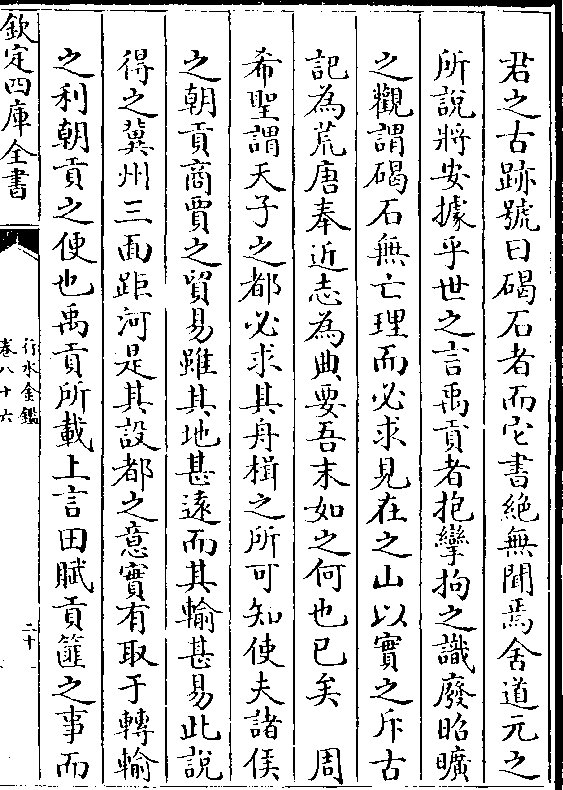 君之古跡號曰碣石者而它書絶無聞焉舍道元之
所說將安據乎世之言禹貢者抱攣拘之識廢昭曠
之觀謂碣石無亡理而必求見在之山以實之斥古
記為荒唐奉近志為典要吾末如之何也已矣　周
希聖謂天子之都必求其舟楫之所可知使夫諸侯
之朝貢商賈之貿易雖其地甚遠而其輸甚易此說
得之冀州三面距河是其設都之意實有取于轉輸
之利朝貢之便也禹貢所載上言田賦貢篚之事而
欽定四庫全書
行水金鑑
卷八十六
二十